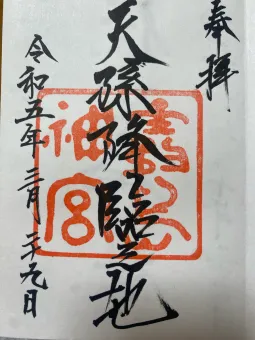 奉拝
天孫降臨之地
神宮
令和五年 三月 二十九日